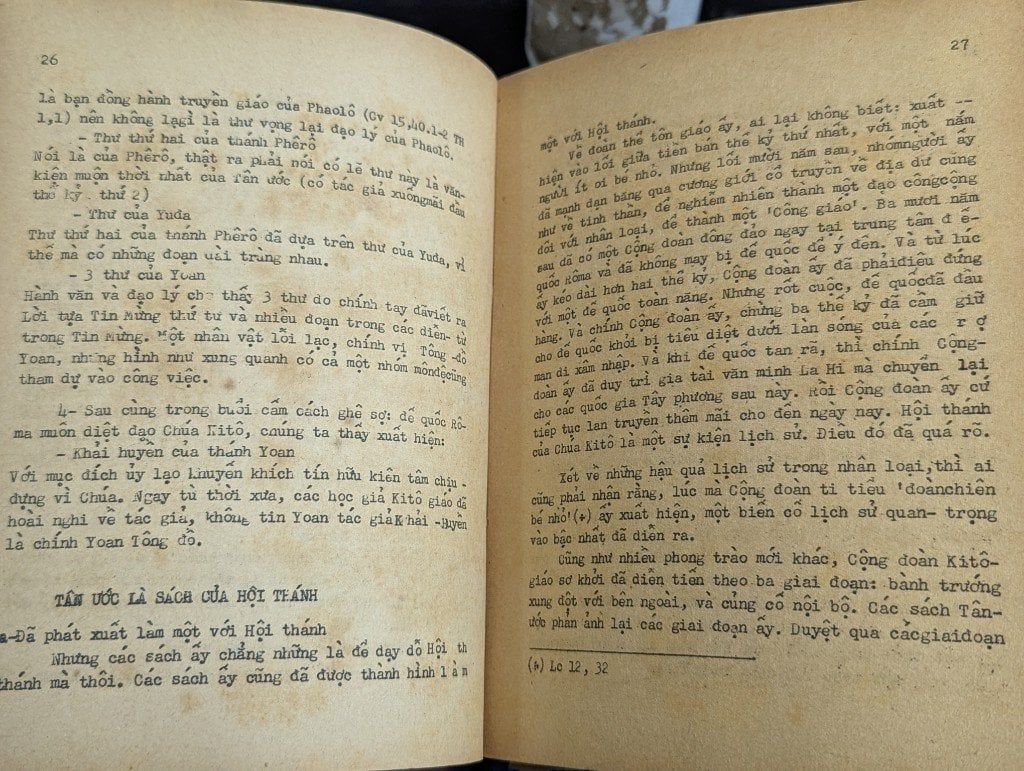 26
là bạn đồng hành truyền giáo của Phaolô (Cv 15,40.1-2 TH
1,1) nên không lạgì là thư vọng lại đạo lý của Phaolô.
- Thư thứ hai của thánh Phêrô
Nói là của Phêrô, thật ra phải nói có lẽ thư này là văn-
kiện muộn thời nhất của Tân ước (có tác giả xuốngmãi đầu
thế kỷ thứ 2)
- Thư của Yuđa
Thư thứ hai của thánh Phêrô đã dựa trên thư của Yuđa, vì
thế mà có những đoạn dài trùng nhau.
- 3 thư của Yoan
Hành văn và đạo lý cho thấy 3 thư do chính tay đãviết ra
Lời tựa Tin Mừng thứ tư và nhiều đoạn trong các diễn-từ
trong Tin Mừng. Một nhân vật lỗi lạc, chính vị Tông-đồ
Yoan, nhưng hình như xung quanh có cả một nhóm mônđệcũng
tham dự vào công việc.
4- Sau cùng trong buổi cấm cách ghê sợ: đế quốc Rô-
ma muốn diệt đạo Chúa Kitô, chúng ta thấy xuất hiện:
- Khải huyền của thánh Yoan
Với mục đích ủy lạo khuyến khích tín hữu kiên tâm chịu -
đựng vì Chúa. Ngay từ thời xưa, các học giả Kitô giáo đã
hoài nghi về tác giả, không tin Yoan tác giảKhải -Huyền
là chính Yoan Tông đồ.
TÂN ƯỚC LÀ SÁCH CỦA HỘI THÁNH
a-Đã phát xuất làm một với Hội thánh
Nhưng các sách ấy chẳng những là để dạy dỗ Hội th
thánh mà thôi. Các sách ấy cũng đã được thành hình làm
27
một với Hội thánh.
Về đoàn thể tôn giáo ấy, ai lại không biết: xuất --
hiện vào lối giữa tiền bán thế kỷ thứ nhất, với một nắm
người ít ỏi bé nhỏ. Nhưng lối mười năm sau, nhómngười ấy
đã mạnh dạn băng qua cương giới cổ truyền về địa dư cũng
như về tinh thần, để nghiễm nhiên thành một đạo côngcộng
đối với nhân loại, để thành một 'Công giáo'. Ba mươi năm
sau đã có một Cộng đoàn đông đảo ngay tại trung tâm đ ế-
quốc Rôma và đã không may bị đế quốc để ý đến. Và từ lúc
ấy kéo dài hơn hai thế kỷ, Cộng đoàn ấy đã phảiđiêu đứng
với một đế quốc toàn năng. Nhưng rốt cuộc, đế quốcđã đầu
hàng. Và chính Cộng đoàn ấy, chừng ba thế kỷ đã cầm giữ
cho đế quốc khỏi bị tiêu diệt dưới làn sóng của các r ợ
man di xâm nhập. Và khi đế quốc tan rã, thì chính Cộng-
đoàn ấy đã duy trì gia tài văn minh La Hi mà chuyển lại
cho các quốc gia Tây phương sau này. Rồi Cộng đoàn ấy cứ
tiếp tục lan truyền thêm mãi cho đến ngày nay. Hội thánh
của Chúa Kitô là một sự kiện lịch sử. Điều đó đã quá rõ.
Xét về những hậu quả lịch sử trong nhân loại,thì ai
cũng phải nhân rằng, lúc mà Cộng đoàn ti tiểu 'đoànchiên
bé nhỏ'(+) ấy xuất hiện, một biến cố lịch sử quan- trọng
vào bậc nhất đã diễn ra.
Cũng như nhiều phong trào mới khác, Cộng đoàn Kitô-
giáo sơ khởi đã diễn tiến theo ba giai đoạn: bành trướng
xung đột với bên ngoài, và củng cố nội bộ. Các sách Tân-
ước phản ảnh lại các giai đoạn ấy. Duyệt qua cácgiaiđoạn
(+) Lc 12, 32